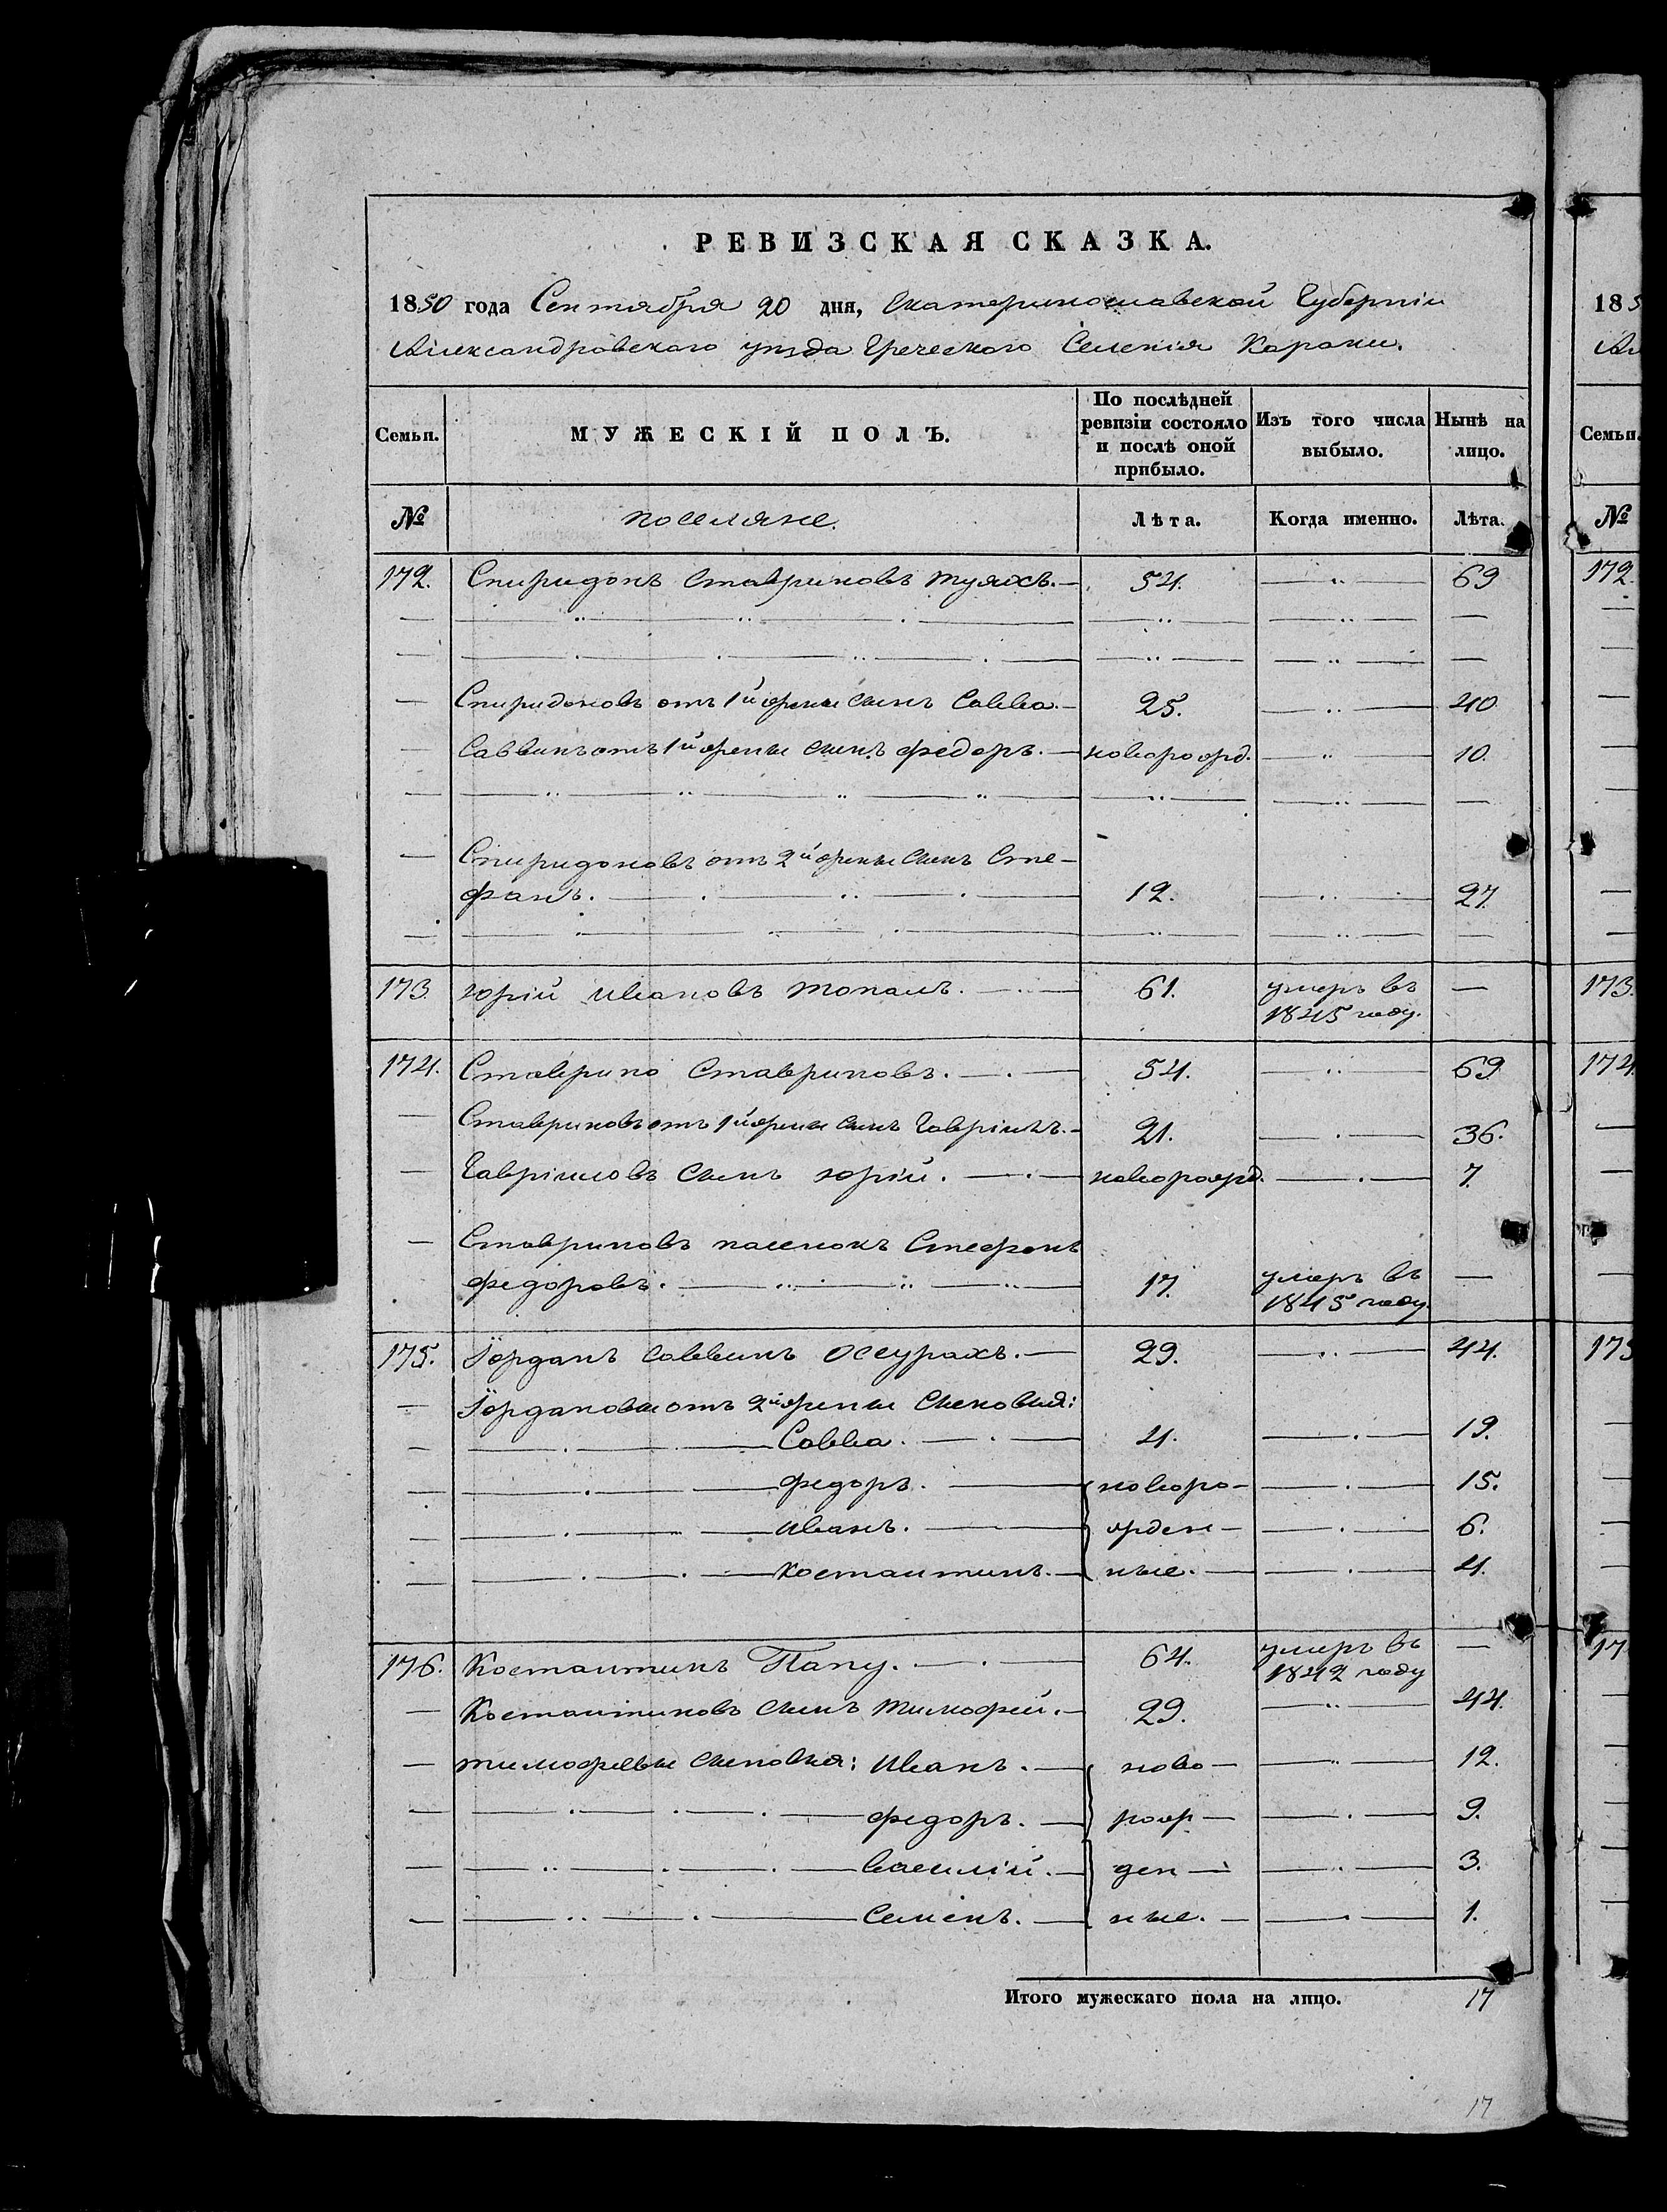 РЕВИЗСКАЯ СКАЗКА.
1850 года Сентября 20 дня, Екатеринославской Губерніи
Александровскаго уѣзда Греческаго Селенія Карани.
Семьи.
МУЖЕСКІЙ ПОЛЪ.
По послѣдней ревизіи состояло и послѣ оной прибыло.
Изъ того числа выбыло.
Нынѣ на лицо.
№ поселяне Лѣта. Когда именно. Лѣта.
172. Спиридонъ Ставриновъ Туяхъ. 54. 69
Спиридоновъ отъ 1й жены сынъ Савва. 25. 40
Саввинъ отъ 1й жены сынъ Федоръ. новорожд. 10.
Спиридоновъ отъ 2й жены сынъ Сте-
фанъ. 12. 27.
173. Юрій Ивановъ Топалъ. 61. умеръ въ
1845 году.
174. Ставрино Ставриновъ. 54. 69
Ставриновъ отъ 1й жены сынъ Гавріилъ. 21. 36.
Гавріиловъ сынъ Юрій. новорожд. 7.
Ставриновъ пасынокъ Стефанъ
Федоровъ. 17. умеръ въ
1845 году.
175. Іорданъ Саввинъ Оссурахъ. 29. 44.
Іордановы отъ 2й жены сыновья:
Савва. 4. 19.
Федоръ. новоро- 15.
Иванъ. жден- 6.
Костантинъ. ные. 4.
176. Костантинъ Папу. 64. умеръ въ
1842 году
Костантиновъ сынъ Тимофей. 29. 44.
Тимофеевы сыновья: Иванъ. ново- 12.
Федоръ. рож- 9.
Василій. ден- 3.
Семенъ. ные. 1.
Итого мужескаго пола на лицо. 17
17
185
Ал
Семьи.
№
172.
173.
174.
175
17